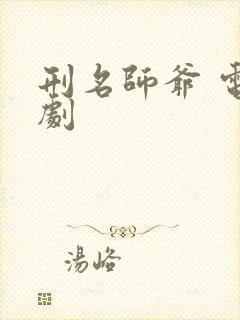 刑名師爺 電
劇
湯峪